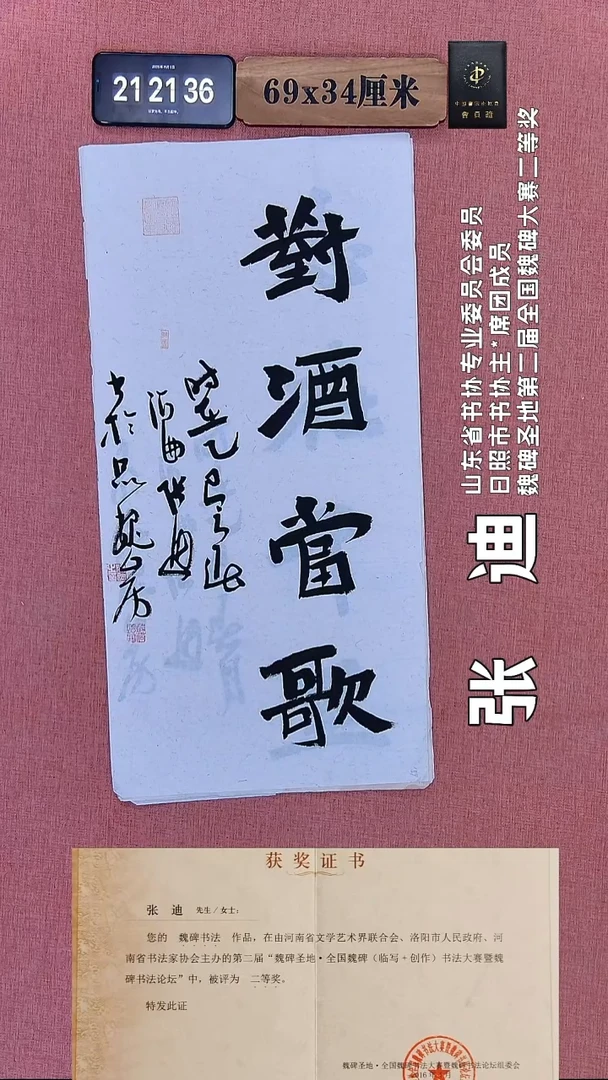 21 21 36
69x34厘米
對酒當歌
山东省书协专业委员会委员
日照市书协主*席团成员
魏碑圣地第二届全国魏碑大赛二等奖
张 迪
获奖证书
张 迪 先生/女士:
您的 魏碑书法 作品,在由河南省文学艺术界联合会、洛阳市人民政府、河
南省书法家协会主办的第二届“魏碑圣地·全国魏碑(临写+创作)书法大赛暨魏
碑书法论坛”中,被评为 二等奖。
特发此证
魏碑圣地·全国魏碑书法大赛暨魏碑书法论坛组委会